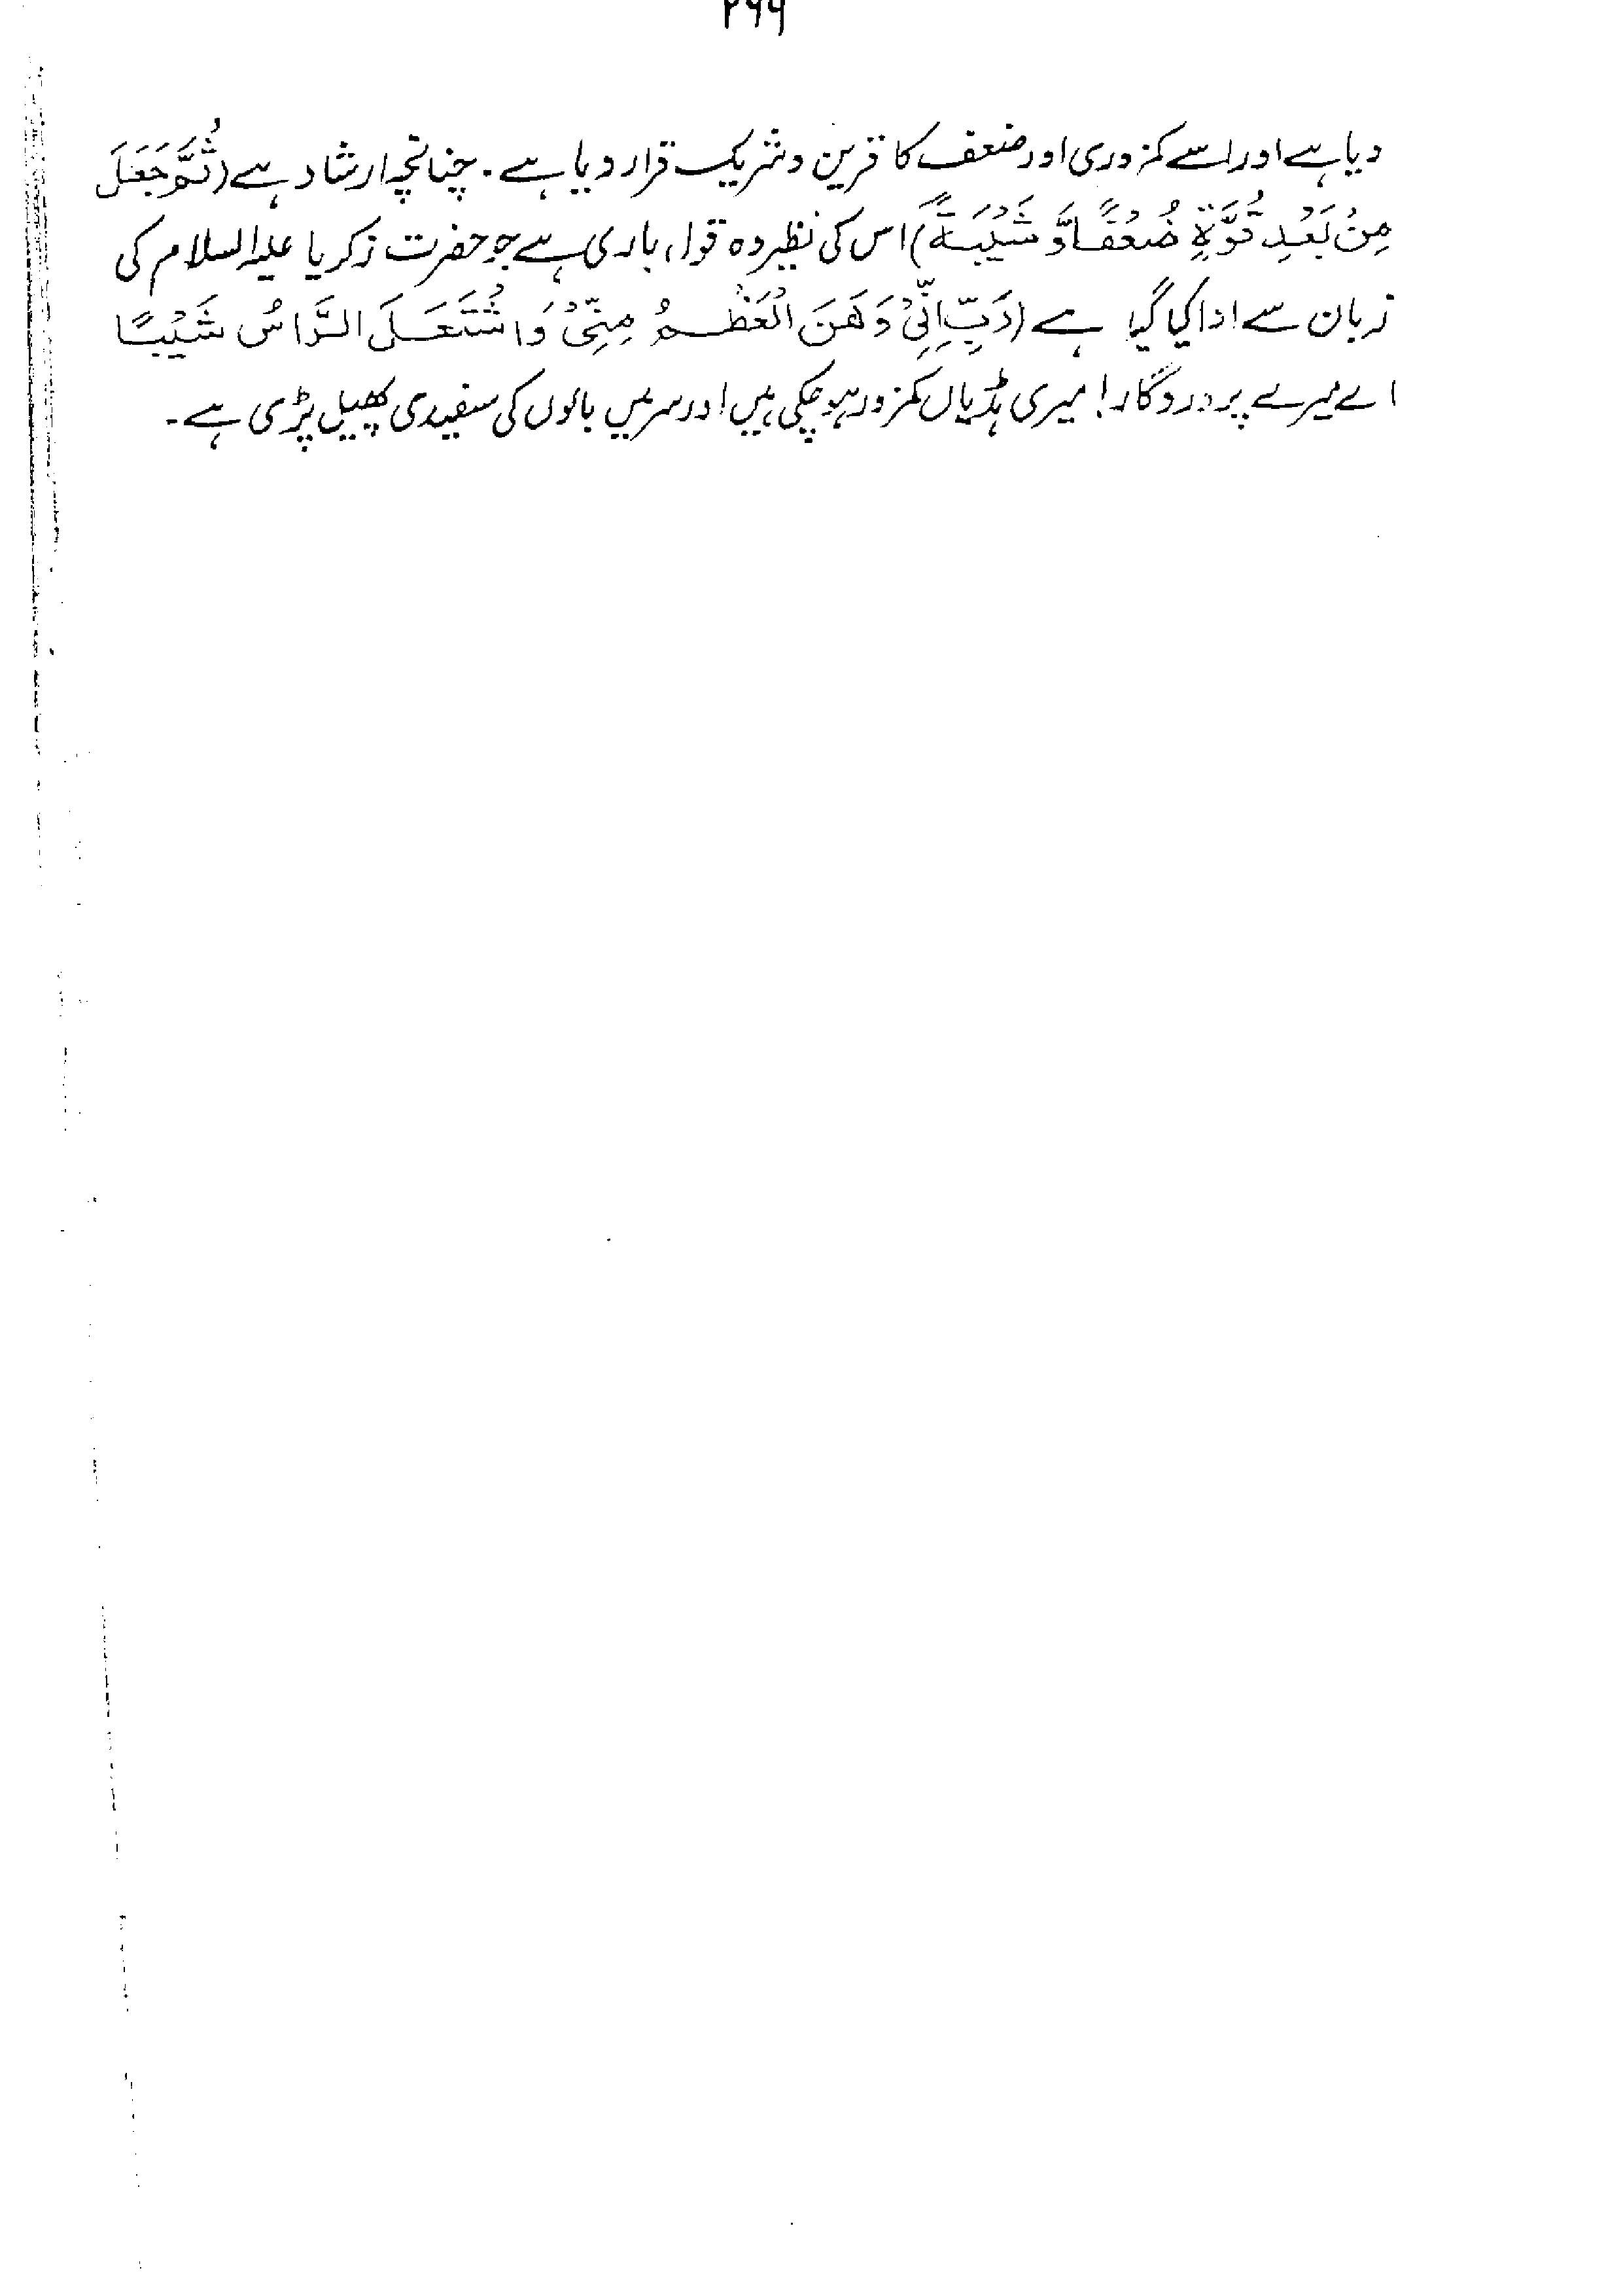 ۲۶۶
دیا ہے اور اسے کمزوری اور ضعف کا قرین و شریک قرار دیا ہے۔ چنانچہ ارشاد ہے (ثُمَّ جَعَلَ
مِنْ بَعْدِ قُوَّةٍ ضُعْفًا وَّ شَيْبَةً) اس کی نظیر وہ قول باری ہے جو حضرت زکریا علیہ السلام کی
زبان سے ادا کیا گیا ہے (رَبِّ اِنِّيْ وَهَنَ الْعَظْمُ مِنِّيْ وَاشْتَعَلَ الرَّاسُ شَيْبًا
اے میرے پروردگار! میری ہڈیاں کمزور ہو چکی ہیں اور سر میں بالوں کی سفیدی پھیل پڑی ہے۔